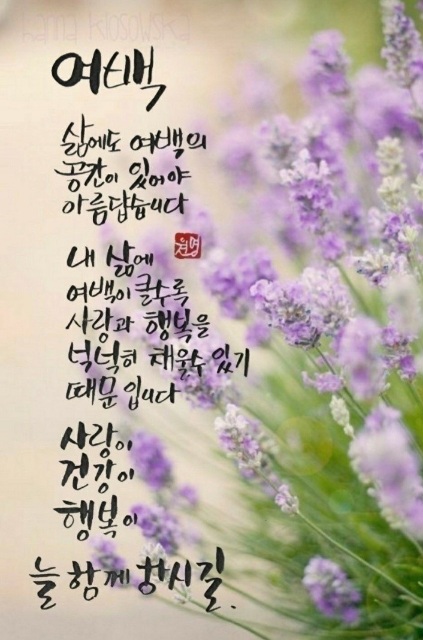 kama kłosowska
여백
삶에도 여백의
공간이 있어야
아름답습니다
내 삶에
여백이 클수록
사랑과 행복을
넉넉히 채울수 있기
때문 입니다
사랑이
건강이
행복이
늘 함께 하시길.